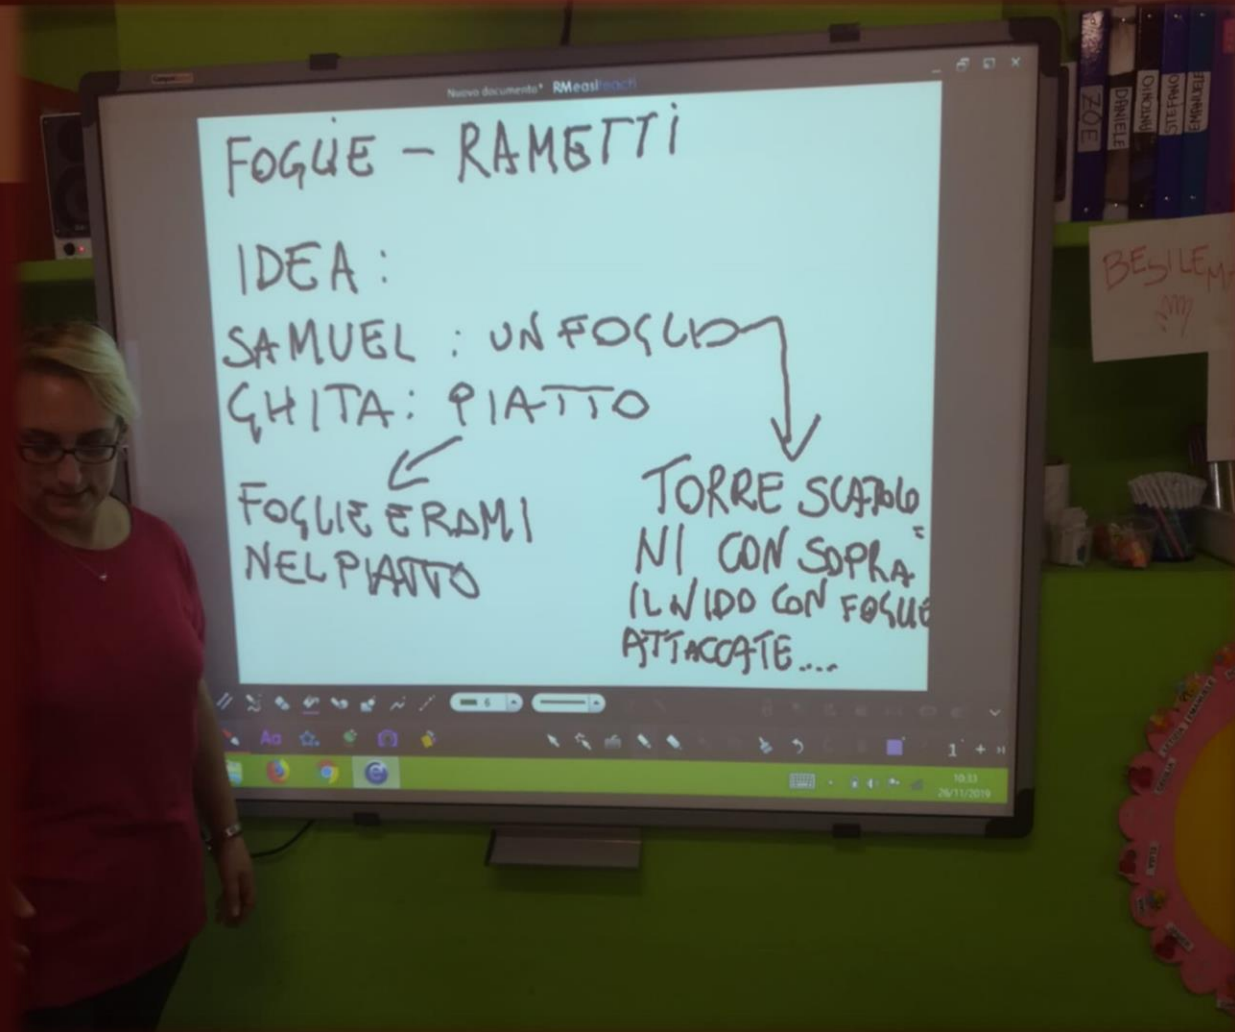 Nuovo documento* RMeasiteach
FOGLIE - RAMETTI
IDEA:
SAMUEL: UN FOGLIO
GHITA: PIATTO
FOGLIE E RAMI
NEL PIATTO
TORRE SCATOLO
=
NI CON SOPRA
IL NIDO CON FOGLIE
ATTACCATE....
Aa
6
1
10:33
26/11/2019
ZOE
DANIELE
STEFANO
BESILEM